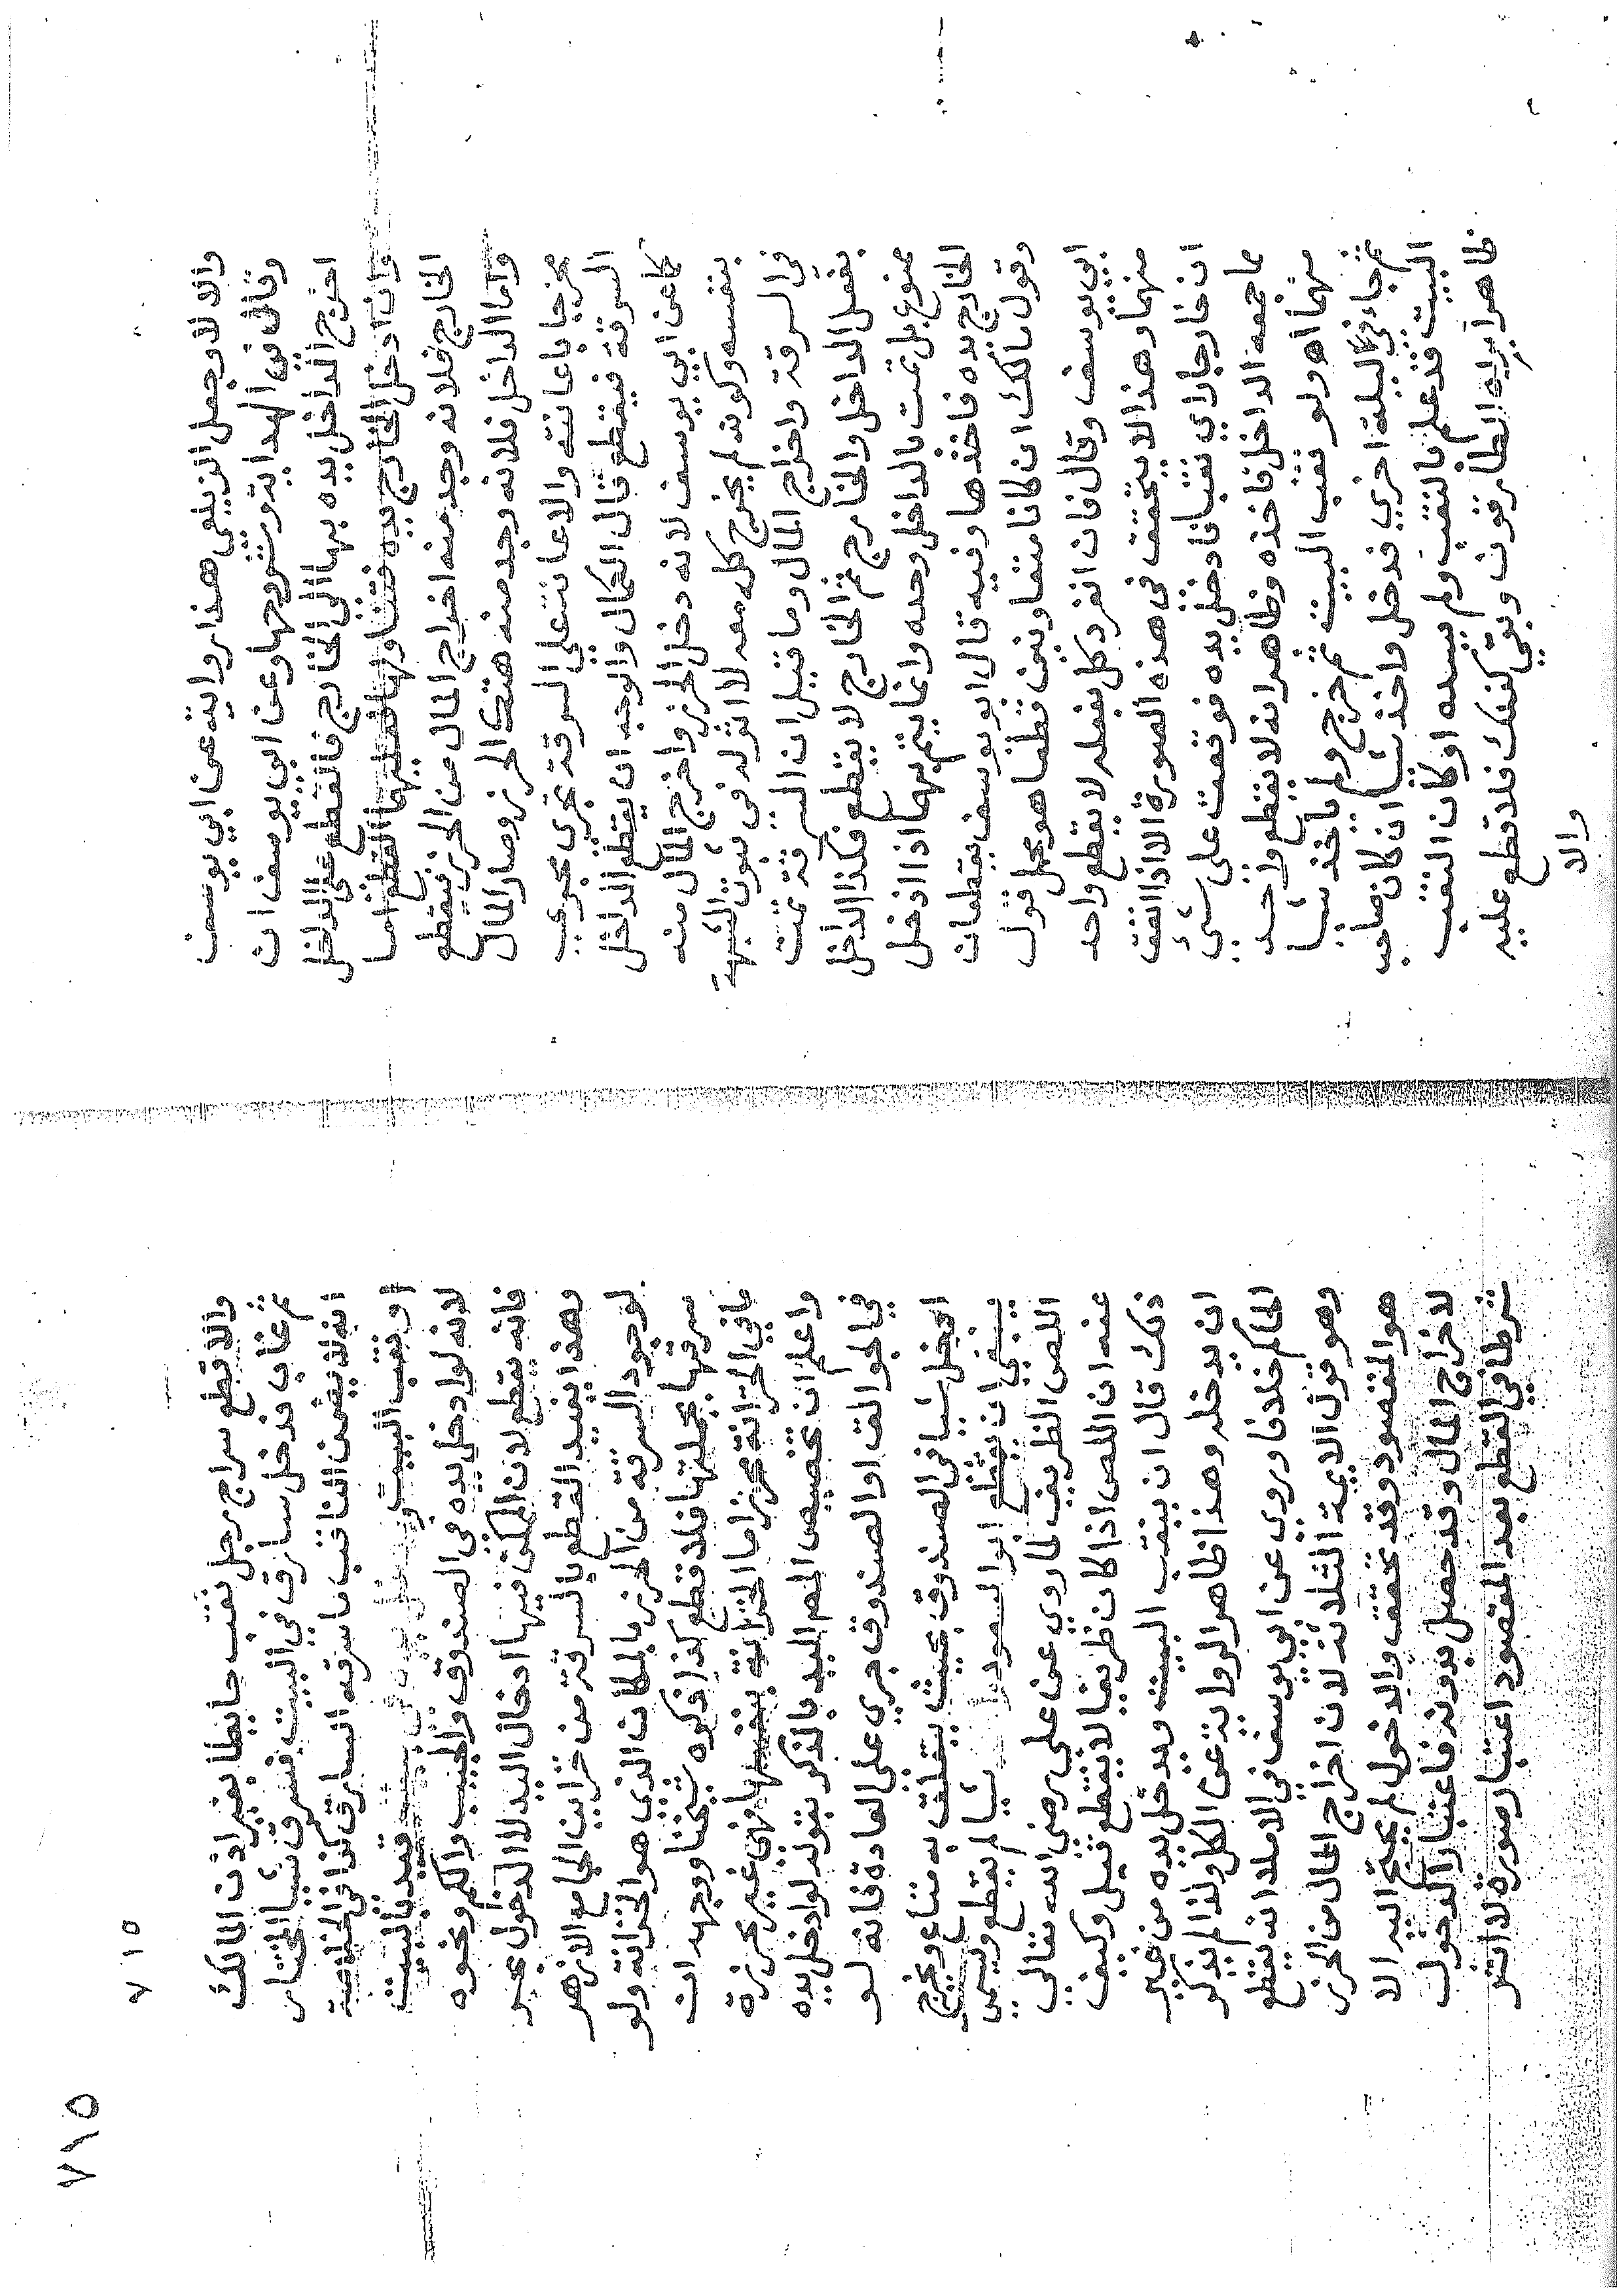 والا لا وجعل الزيلعي هذا رواية عن ابي يوسف
وقال في الهداية وشروحها وعن ابي يوسف ان
اخرج الداخل يده بها الى الخارج فالقطع على الداخل
وان ادخل الخارج يده فتناولها فعليهما القطع اما
الخارج فلانه وجد منه اخراج المال من الحرز فيقطع
واما الداخل فلانه وجد منه هتك الحرز وصار المال
مخرجا باعانته والاعانة على السرقة تجري مجرى
السرقة فيقطع قال الكمال والوجه ان يقطع الداخل
كما عن ابي يوسف لانه دخل الحرز واخرج المال منه
بنفسه وكونه لم يخرج كله معه لا اثر له في ثبوت الشبهة
في السرقة واخراج المال وما قيل ان السرقة تمت
بفعل الداخل والخارج ثم الخارج لا يقطع فكذا الداخل
ممنوع بل تمت بالداخل وحده وانما يتم بهما اذا ادخل
الخارج يده فاخذها وفيه قال ابو يوسف يقطعان
وقول مالك ان كانا متعاونين قطعا هو محمل قول
ابي يوسف وقال فان انفرد كل بفعله لا يقطع واحد
منهما وهذا لا يتحقق في هذه الصورة الا اذا اتفق
ان خارجا راى نقبا فادخل يده فوقعت على شيء
مما جمعه الداخل فاخذه وظاهر انه لا يقطع واحد
منهما اهـ ولو نقب البيت ثم خرج ولم ياخذ شيا
ثم جاء في ليلة اخرى فدخل واخذ شيا ان كان صاحب
البيت قد علم بالنقب ولم يسده او كان النقب
ظاهرا يراه الطارقون وبقي كذلك فلا قطع عليه
والا
٧١٥
٧١٥
والا قطع سراج رجل نقب حايطا بغير اذن المالك
ثم غاب فدخل سارق في البيت فسرق شيا المختار
انه لا يضمن الناقب ما سرقه السارق كذا في الخلاصة
او نقب البيت وادخل يده في شيء قيد بالبيت
لانه لو ادخل يده في الصندوق والجيب والكم ونحوه
فانه يقطع لان الممكن فيها ادخال اليد لا الدخول بحر
وهذا يفيد القطع بالسرقة من خزاين الجامع الازهر
لوجود السرقة من الحرز بالمكان الذي هو الخزانة ولو
سرقها بجملتها فلا قطع كذا ذكره شيخنا ووجهه ان
ما في الخزانة محرز اما الخزانة بنفسها فهي غير محرزة
واعلم ان تخصيص المص اليد بالذكر بقوله لو ادخل يده
في الجوالق او الصندوق جري على العادة فانه لو
ادخل شيا في الصندوق بحيث يتعلق به متاع ويخرج
ينبغي ان يقطع ابو السعود شيا لم يقطع ويسمى
اللص الظريف لما روي عن علي رضي الله تعالى
عنه ان اللص اذا كان ظريفا لا يقطع قيل وكيف
ذلك قال ان ينقب البيت ويدخل يده من غير
ان يدخله وهذا ظاهر الرواية عن الكل ولذا لم يذكر
الحاكم خلافا وروي عن ابي يوسف في الاملاء انه يقطع
وهو قول الايمة الثلاثة لان اخراج المال من الحرز
هو المقصود وقد تحقق والدخول لم يحتج اليه الا
لاخراج المال وقد حصل بدونه فاعتبار الدخول
شرطا في القطع بعد المقصود اعتبار صورة لا اثر